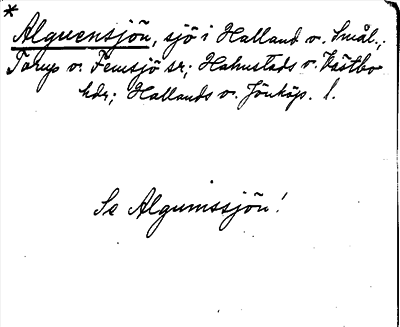 *
Alguensjön, sjö i Halland o. Smål.;
Torup o. Femsjö sr; Halmstads o. Västbo
hdr; Hallands o. Jönköp. l.
Se Algumssjön!